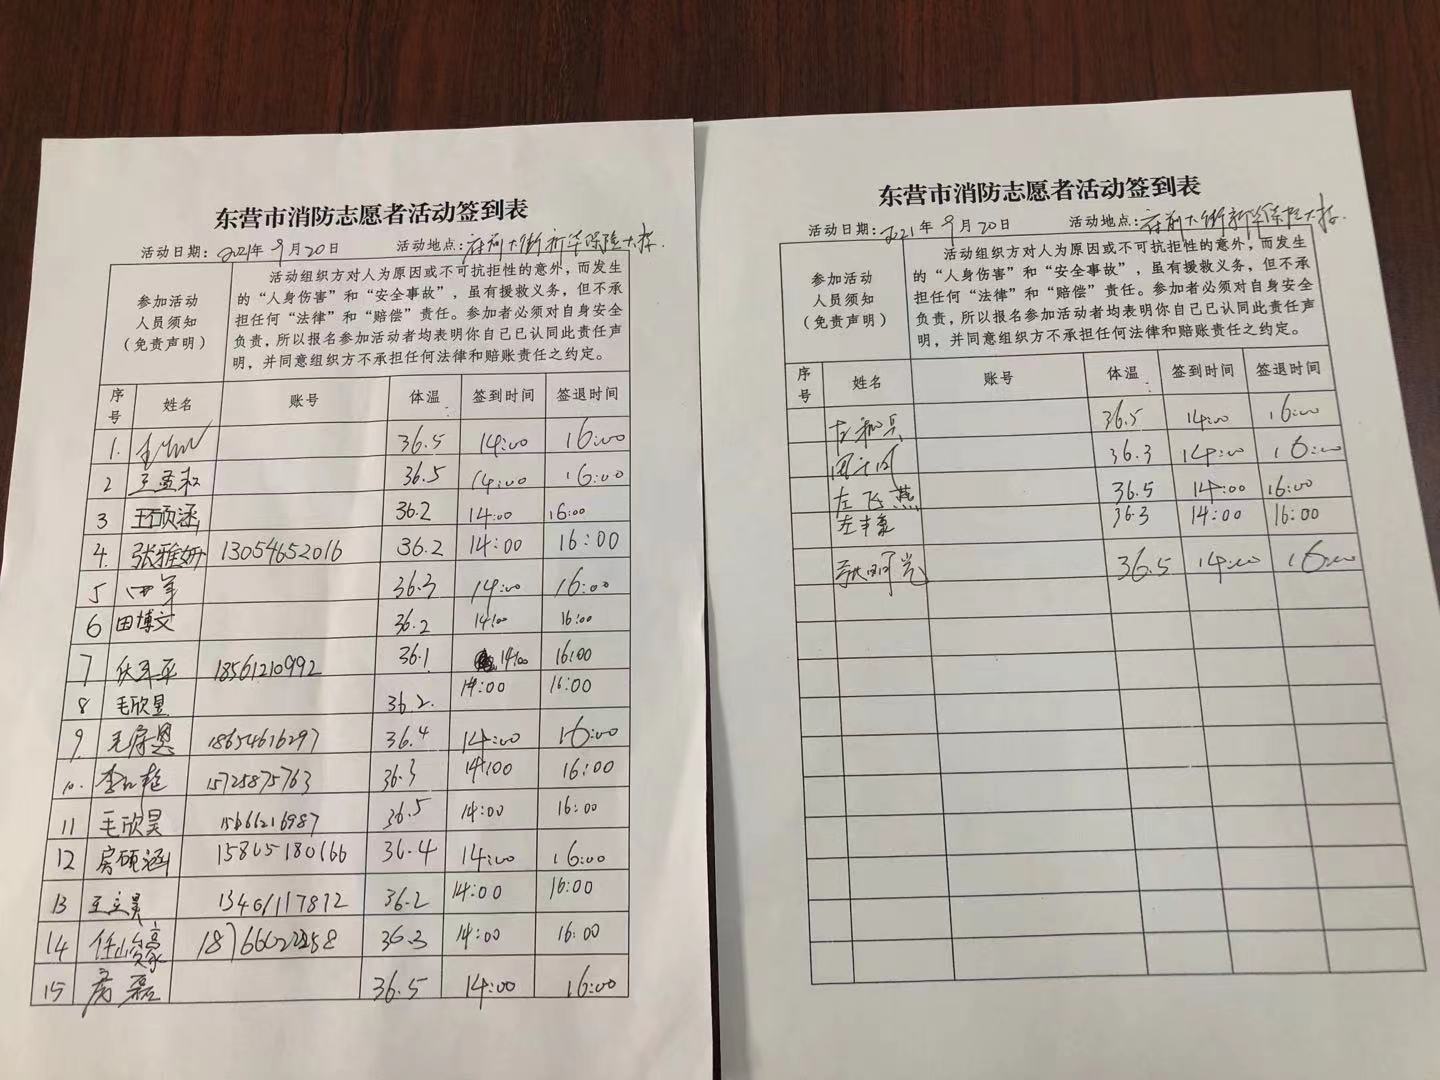 东营市消防志愿者活动签到表
活动日期：2021年9月20日 活动地点：府前大街新华保险大楼
参加活动
人员须知
（免责声明）
活动组织方对人为原因或不可抗拒性的意外，而发生
的“人身伤害”和“安全事故”，虽有援救义务，但不承
担任何“法律”和“赔偿”责任。参加者必须对自身安全
负责，所以报名参加活动者均表明你自己已认同此责任声
明，并同意组织方不承担任何法律和赔账责任之约定。
序号 姓名 账号 体温 签到时间 签退时间
1. 36.5 14:00 16:00
2 王孟和 36.5 14:00 16:00
3 王硕涵 36.2 14:00 16:00
4. 张雅妍 13054652016 36.2 14:00 16:00
5 36.3 14:00 16:00
6 田博文 36.2 14:00 16:00
7 18561210992 36.1 14:00 16:00
8 毛欣昱 36.2. 14:00 16:00
9. 18654616297 36.4 14:00 16:00
10. 15725875763 36.3 14:00 16:00
11 毛欣昊 15666216987 36.5 14:00 16:00
12 房硕涵 15865180166 36.4 14:00 16:00
13 王立昊 36.2 14:00 16:00
14 任山豪 36.3 14:00 16:00
15 房磊 36.5 14:00 16:00
东营市消防志愿者活动签到表
活动日期：2021年9月20日 活动地点：府前大街新华保险大楼.
参加活动
人员须知
（免责声明）
活动组织方对人为原因或不可抗拒性的意外，而发生
的“人身伤害”和“安全事故”，虽有援救义务，但不承
担任何“法律”和“赔偿”责任。参加者必须对自身安全
负责，所以报名参加活动者均表明你自己已认同此责任声
明，并同意组织方不承担任何法律和赔账责任之约定。
序号 姓名 账号 体温 签到时间 签退时间
左和兵 36.5 14:00 16:00
36.3 14:00 16:00
左飞燕 36.5 14:00 16:00
36.3 14:00 16:00
耿明光 36.5 14:00 16:00